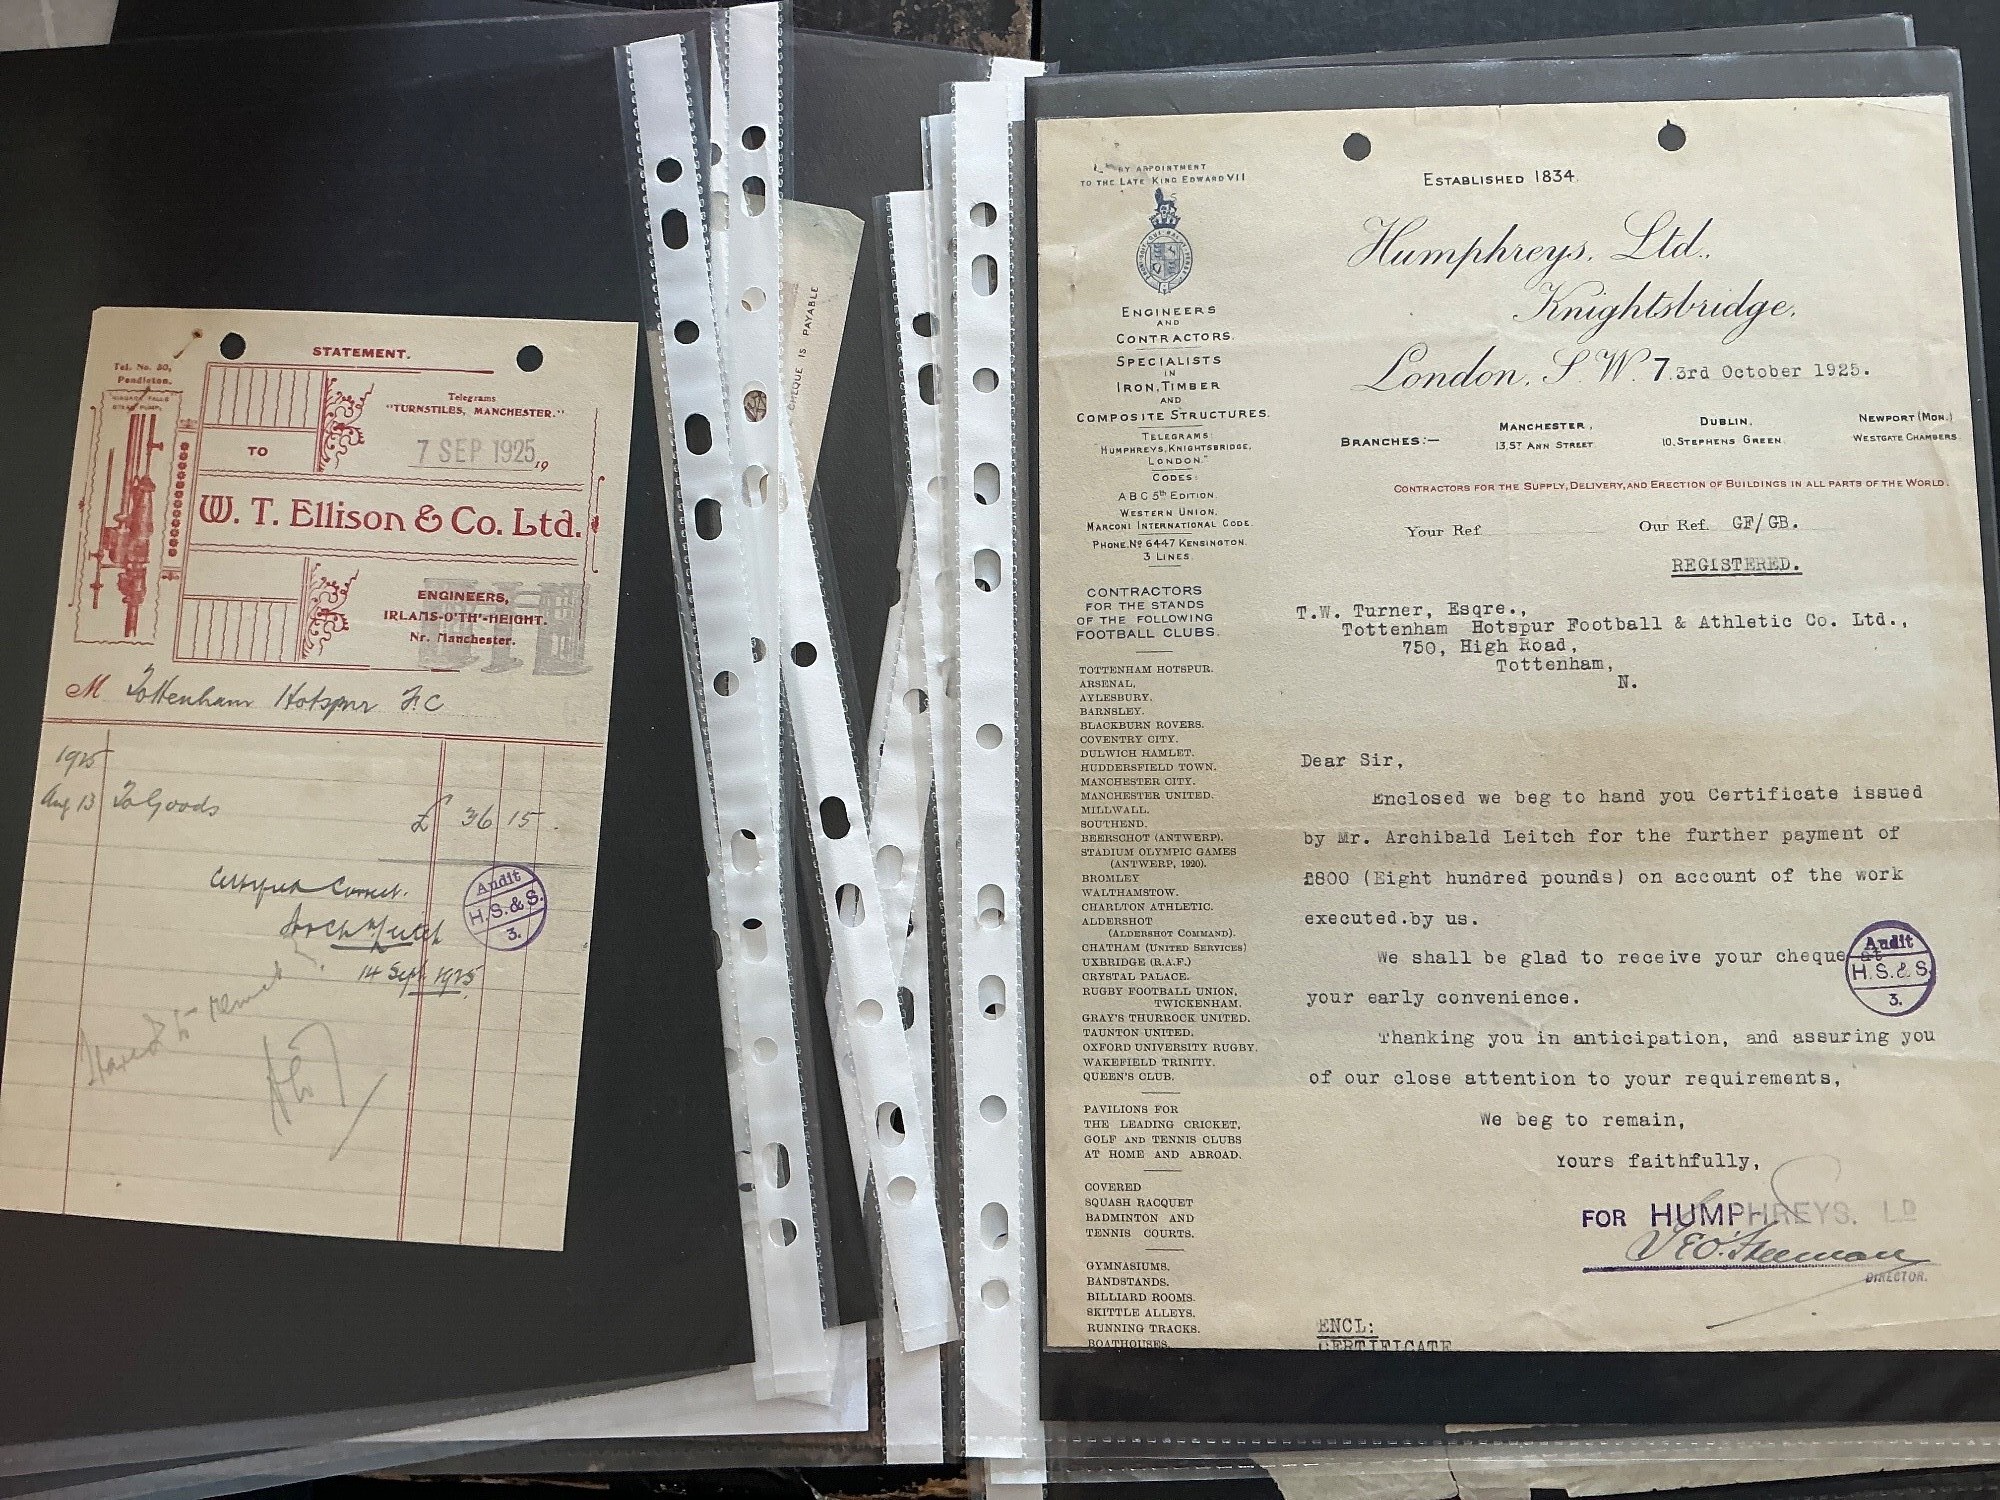 Tel. No. 50,
Pendleton.
STATEMENT.
Telegrams
"TURNSTILES, MANCHESTER."
7 SEP 1925 19
TO
W. T. Ellison & Co. Ltd.
ENGINEERS,
IRLAMS-O'TH'-HEIGHT.
Nr. Manchester.
M Tottenham Hotspur F.C
1925
Aug 13 To Goods £ 36 15 .
Certified Correct.
Arch Leitch
14 Sept 1925
Audit
H.S.& S.
3.
CHEQUE IS PAYABLE
BY APPOINTMENT
TO THE LATE KING EDWARD VII
ESTABLISHED 1834.
Humphreys, Ltd.,
Knightsbridge,
London, S.W.7. 3rd October 1925.
ENGINEERS
AND
CONTRACTORS.
SPECIALISTS
IN
IRON, TIMBER
AND
COMPOSITE STRUCTURES.
TELEGRAMS:
"HUMPHREYS, KNIGHTSBRIDGE,
LONDON."
CODES:
A B C 5th EDITION.
WESTERN UNION.
MARCONI INTERNATIONAL CODE.
PHONE. No 6447 KENSINGTON.
3 LINES.
BRANCHES:— MANCHESTER, DUBLIN, NEWPORT (MON.)
13, ST ANN STREET 10, STEPHENS GREEN. WESTGATE CHAMBERS
CONTRACTORS FOR THE SUPPLY, DELIVERY, AND ERECTION OF BUILDINGS IN ALL PARTS OF THE WORLD.
Your Ref Our Ref. GF/GB.
REGISTERED.
CONTRACTORS
FOR THE STANDS
OF THE FOLLOWING
FOOTBALL CLUBS.
TOTTENHAM HOTSPUR.
ARSENAL,
AYLESBURY,
BARNSLEY.
BLACKBURN ROVERS.
COVENTRY CITY.
DULWICH HAMLET.
HUDDERSFIELD TOWN.
MANCHESTER CITY.
MANCHESTER UNITED.
MILLWALL.
SOUTHEND.
BEERSCHOT (ANTWERP).
STADIUM OLYMPIC GAMES
(ANTWERP, 1920).
BROMLEY
WALTHAMSTOW.
CHARLTON ATHLETIC.
ALDERSHOT
(ALDERSHOT COMMAND).
CHATHAM (UNITED SERVICES)
UXBRIDGE (R.A.F.)
CRYSTAL PALACE.
RUGBY FOOTBALL UNION,
TWICKENHAM.
GRAY'S THURROCK UNITED.
TAUNTON UNITED.
OXFORD UNIVERSITY RUGBY.
WAKEFIELD TRINITY.
QUEEN'S CLUB.
PAVILIONS FOR
THE LEADING CRICKET,
GOLF AND TENNIS CLUBS
AT HOME AND ABROAD.
COVERED
SQUASH RACQUET
BADMINTON AND
TENNIS COURTS.
GYMNASIUMS,
BANDSTANDS.
BILLIARD ROOMS.
SKITTLE ALLEYS.
RUNNING TRACKS.
BOATHOUSES.
T.W. Turner, Esqre.,
Tottenham Hotspur Football & Athletic Co. Ltd.,
750, High Road,
Tottenham,
N.
Dear Sir,
Enclosed we beg to hand you Certificate issued
by Mr. Archibald Leitch for the further payment of
£800 (Eight hundred pounds) on account of the work
executed.by us.
We shall be glad to receive your cheque at
your early convenience.
Audit
H.S.& S.
3.
Thanking you in anticipation, and assuring you
of our close attention to your requirements,
We beg to remain,
Yours faithfully,
FOR HUMPHREYS. LD
Geo. Freeman
DIRECTOR.
ENCL:
CERTIFICATE